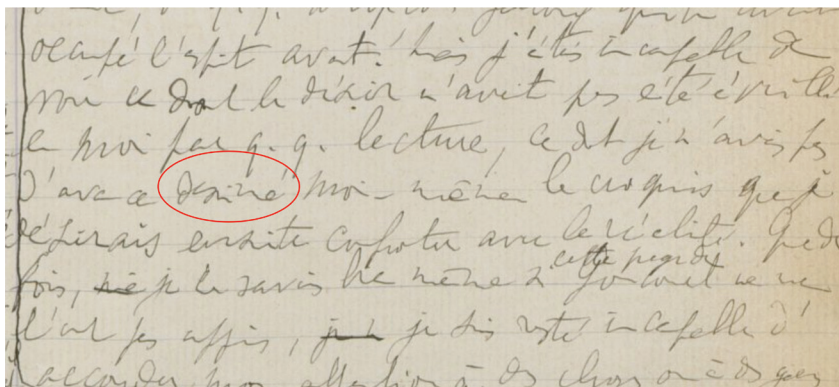 occupé l'esprit avant. Mais j'étais incapable de
voir ce dont le désir n'avait pas été éveillé
en moi par q.q. lecture, ce dont je n'avais pas
d'avance dessiné moi-même le croquis que je
désirais ensuite confronter avec la réalité. Que de
fois, je le savais bien même si cette page de Goncourt ne me
l'eut pas appris, je suis resté incapable d'
accorder mon attention à des choses ou à des gens